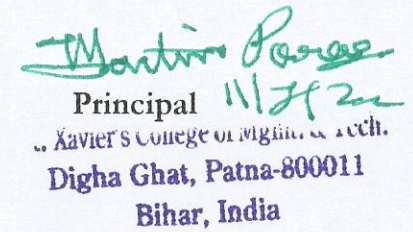 Martin
Principal
Xavier's College of Mgmt. & Tech.
Digha Ghat, Patna-800011
Bihar, India